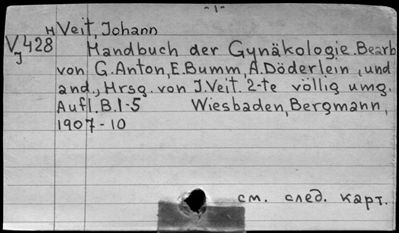 -1-
н Veit, Johann
V 428
J
Handbuch der Gynäkologie. Bearb
von G. Anton, E. Bumm, A. Döderlein, und
and., Hrsg. von J. Veit. 2-te völlig umg.
Aufl. B. 1-5 Wiesbaden, Bergmann,
1907-10
см. след. карт.